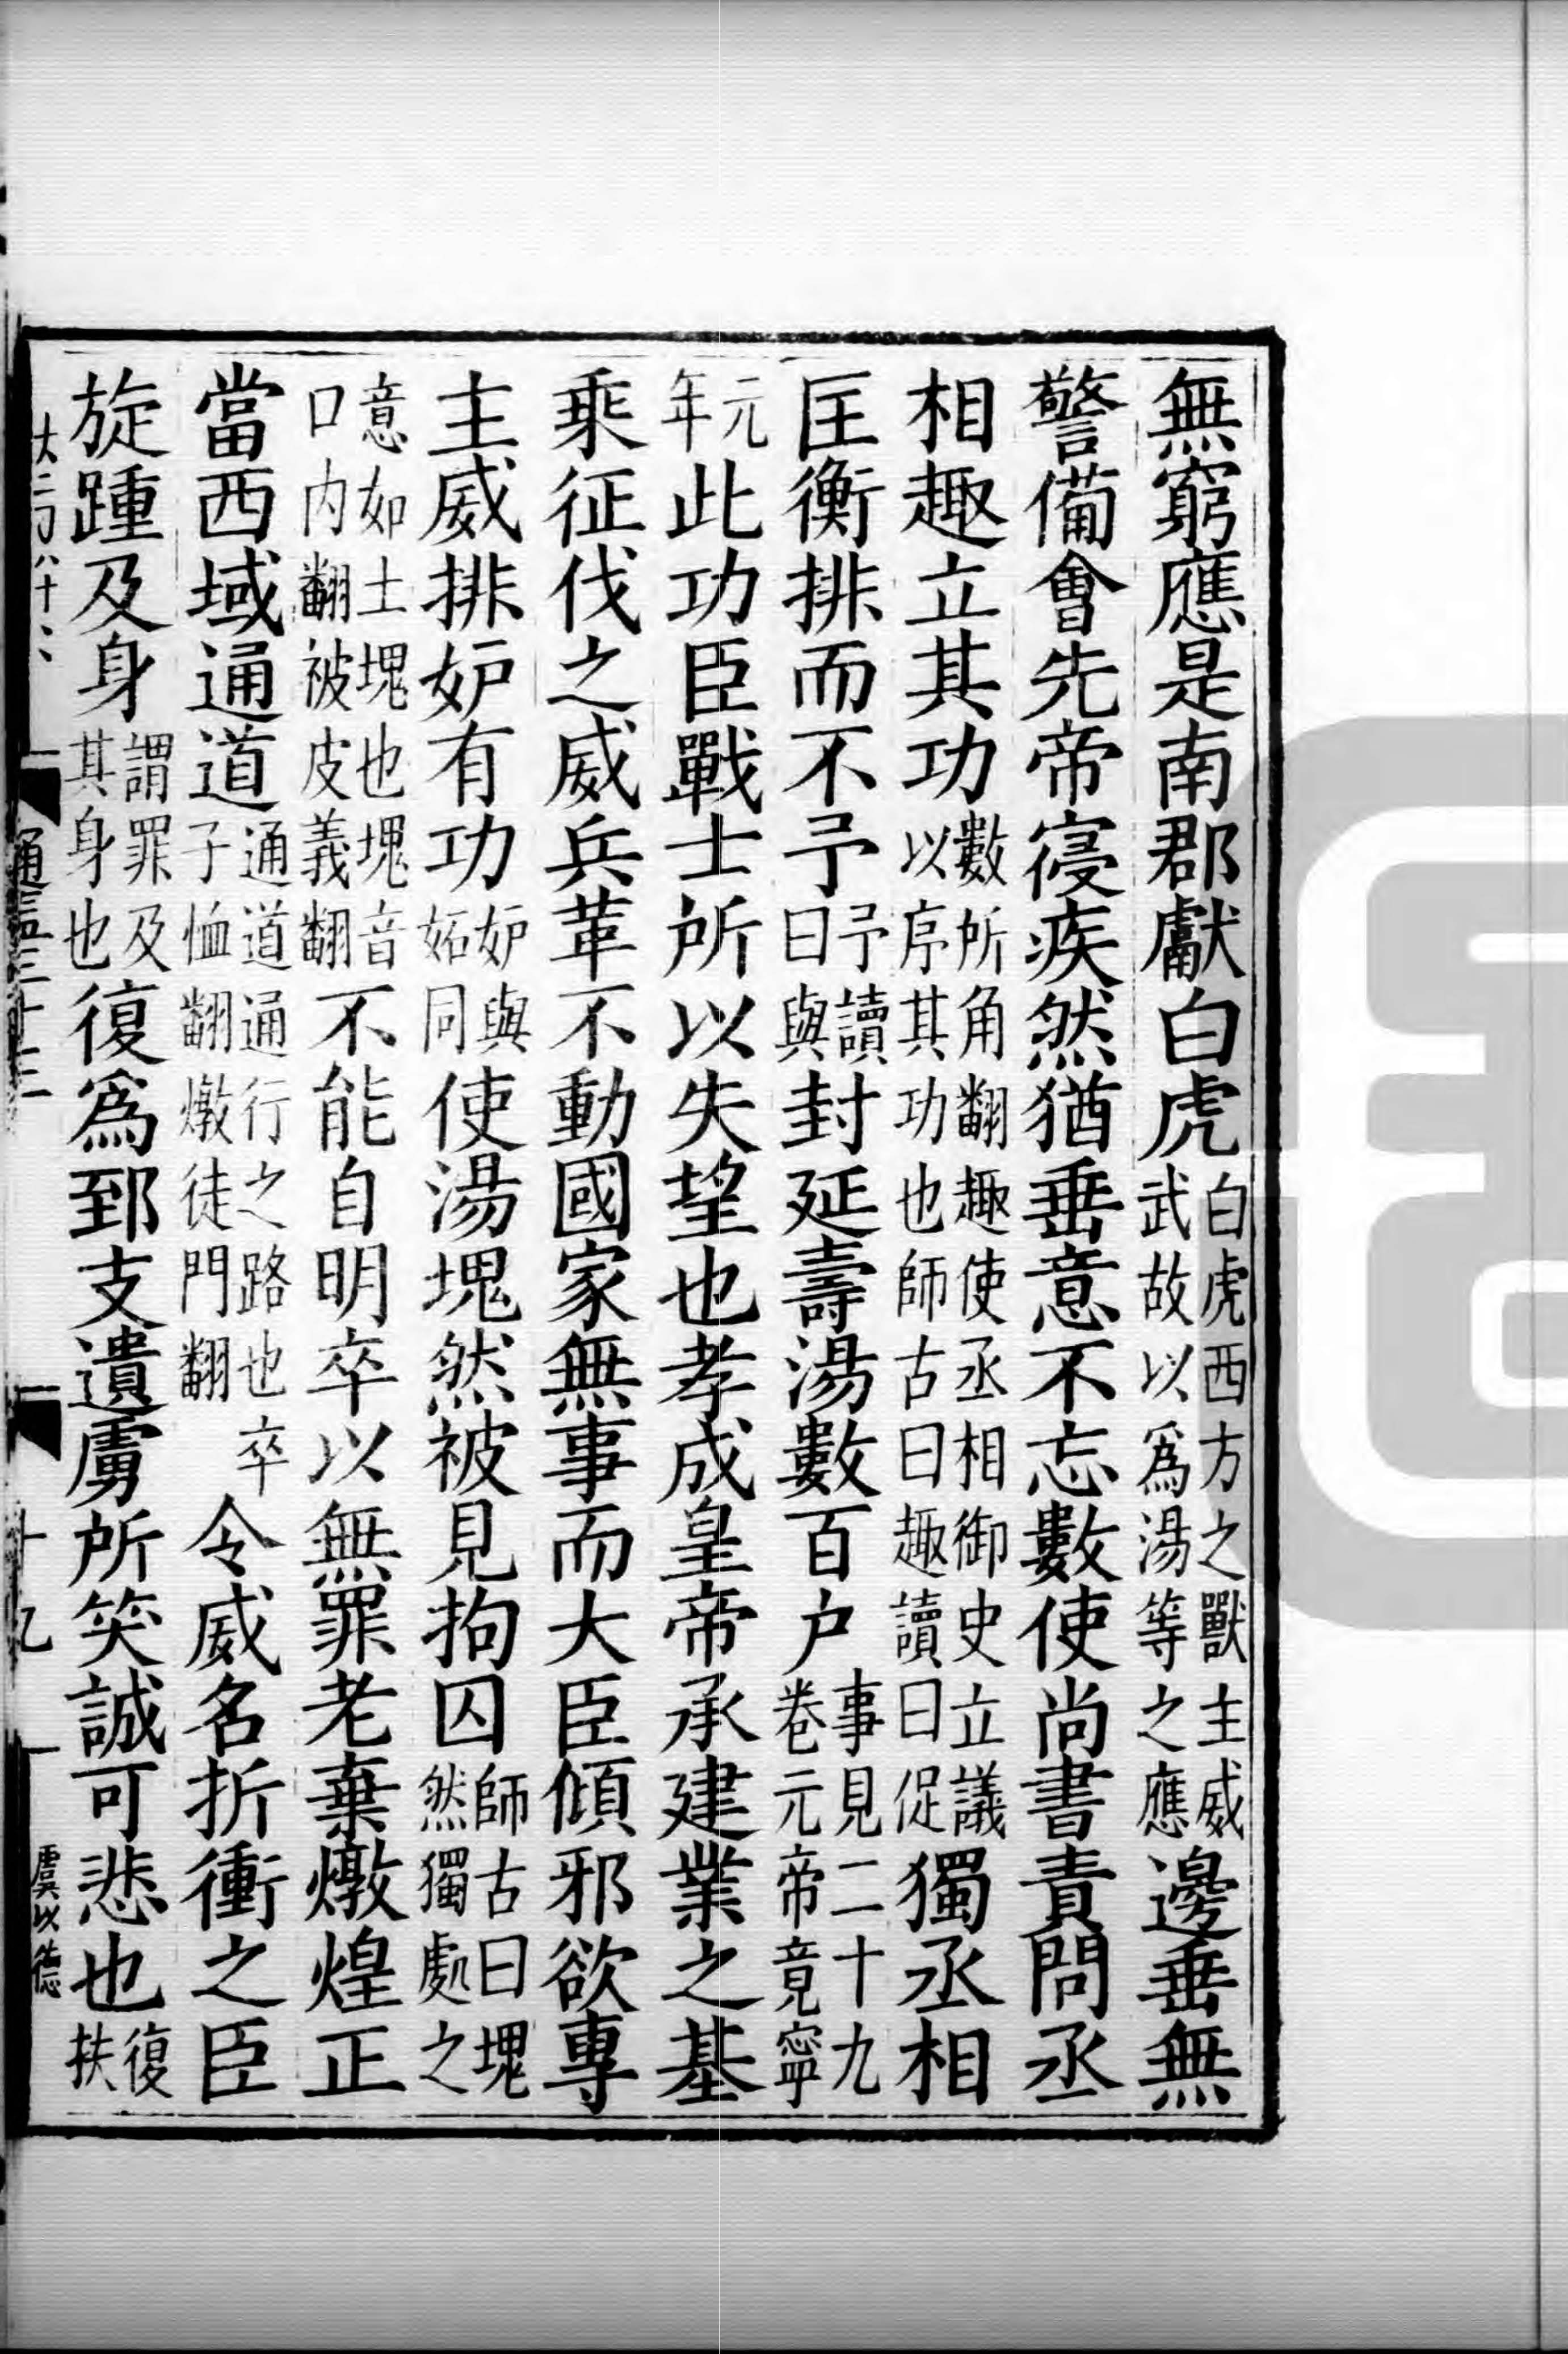 無窮應是南郡獻白虎白虎西方之獸主威武故以爲湯等之應邊垂無
警備會先帝寑疾然猶垂意不忘數使尚書責問丞
相趣立其功數所角翻趣使丞相御史立議以序其功也師古曰趣讀曰促獨丞相
匡衡排而不予予讀曰與封延壽湯數百户事見二十九卷元帝竟寧
元年此功臣戰士所以失望也孝成皇帝承建業之基
乘征伐之威兵革不動國家無事而大臣傾邪欲專
主威排妒有功妒與妬同使湯塊然被見拘囚師古曰塊然獨處之
意如土塊也塊音口内翻被皮義翻不能自明卒以無罪老棄燉煌正
當西域通道通道通行之路也卒子恤翻燉徒門翻令威名折衝之臣
旋踵及身謂罪及其身也復爲郅支遺虜所笑誠可悲也復扶
通三十三
十九
虞以德